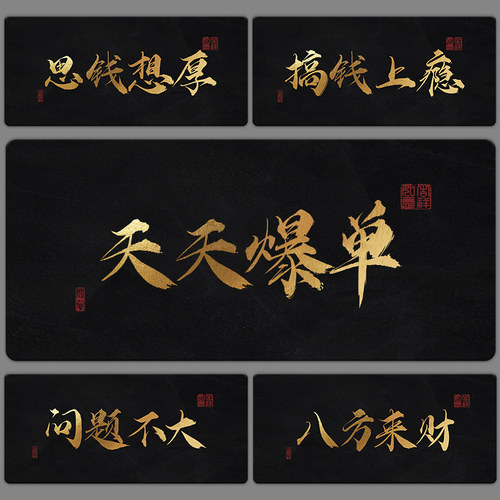 思钱想厚
搞钱上瘾
天天爆单
问题不大
八方来财